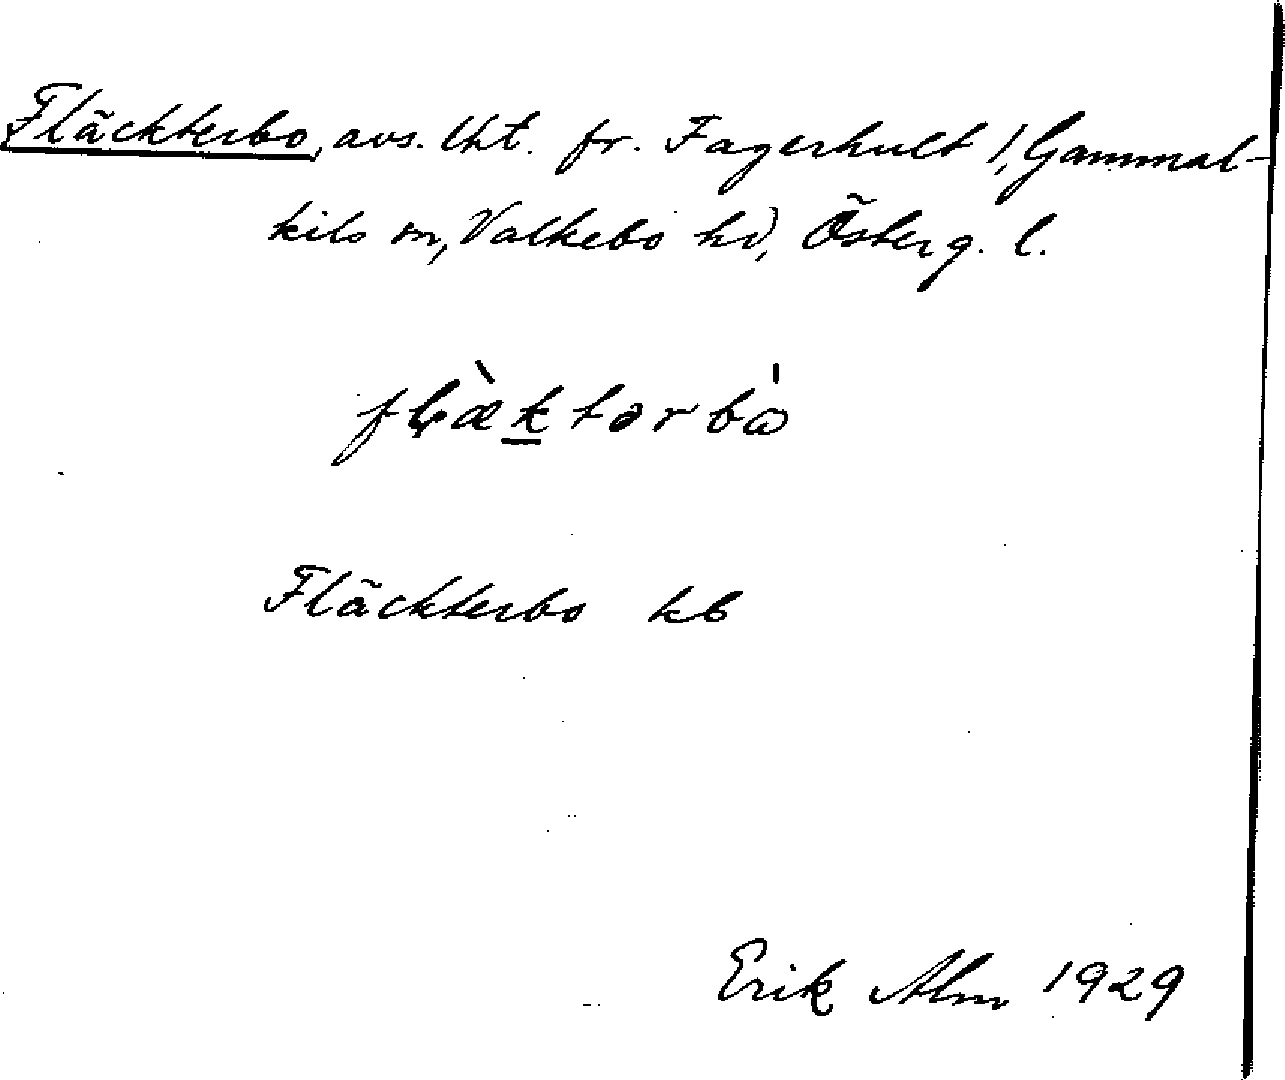 Fläckterbo, avs. lht. fr. Fagerhult 1, Gammal-
kils sn, Valkebo hd, Österg. l.
Fläckterbo kb
Erik Alm 1929